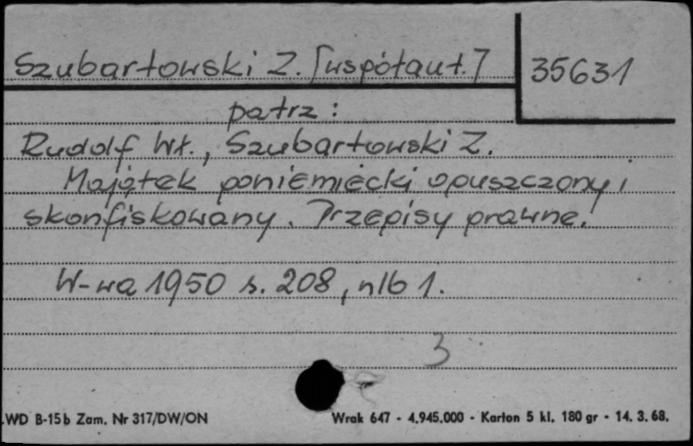 Szubartowski Z. [współaut.] 35631
patrz:
Rudolf Wł., Szubartowski Z.
Majątek poniemiecki opuszczony i
skonfiskowany. Przepisy prawne.
W-wa 1950 s. 208, nlb 1.
3
WD B-15b Zam. Nr 317/DW/ON Wrak 647 - 4.945.000 - Karton 5 kl. 180 gr - 14. 3. 68.